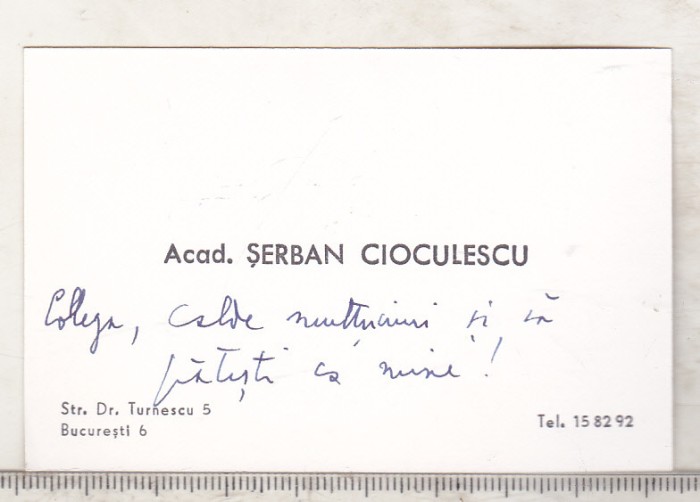 Acad. ŞERBAN CIOCULESCU
Collega, calde mulţumiri şi să
păteşti ca mine!
Str. Dr. Turnescu 5
Bucureşti 6
Tel. 15 82 92